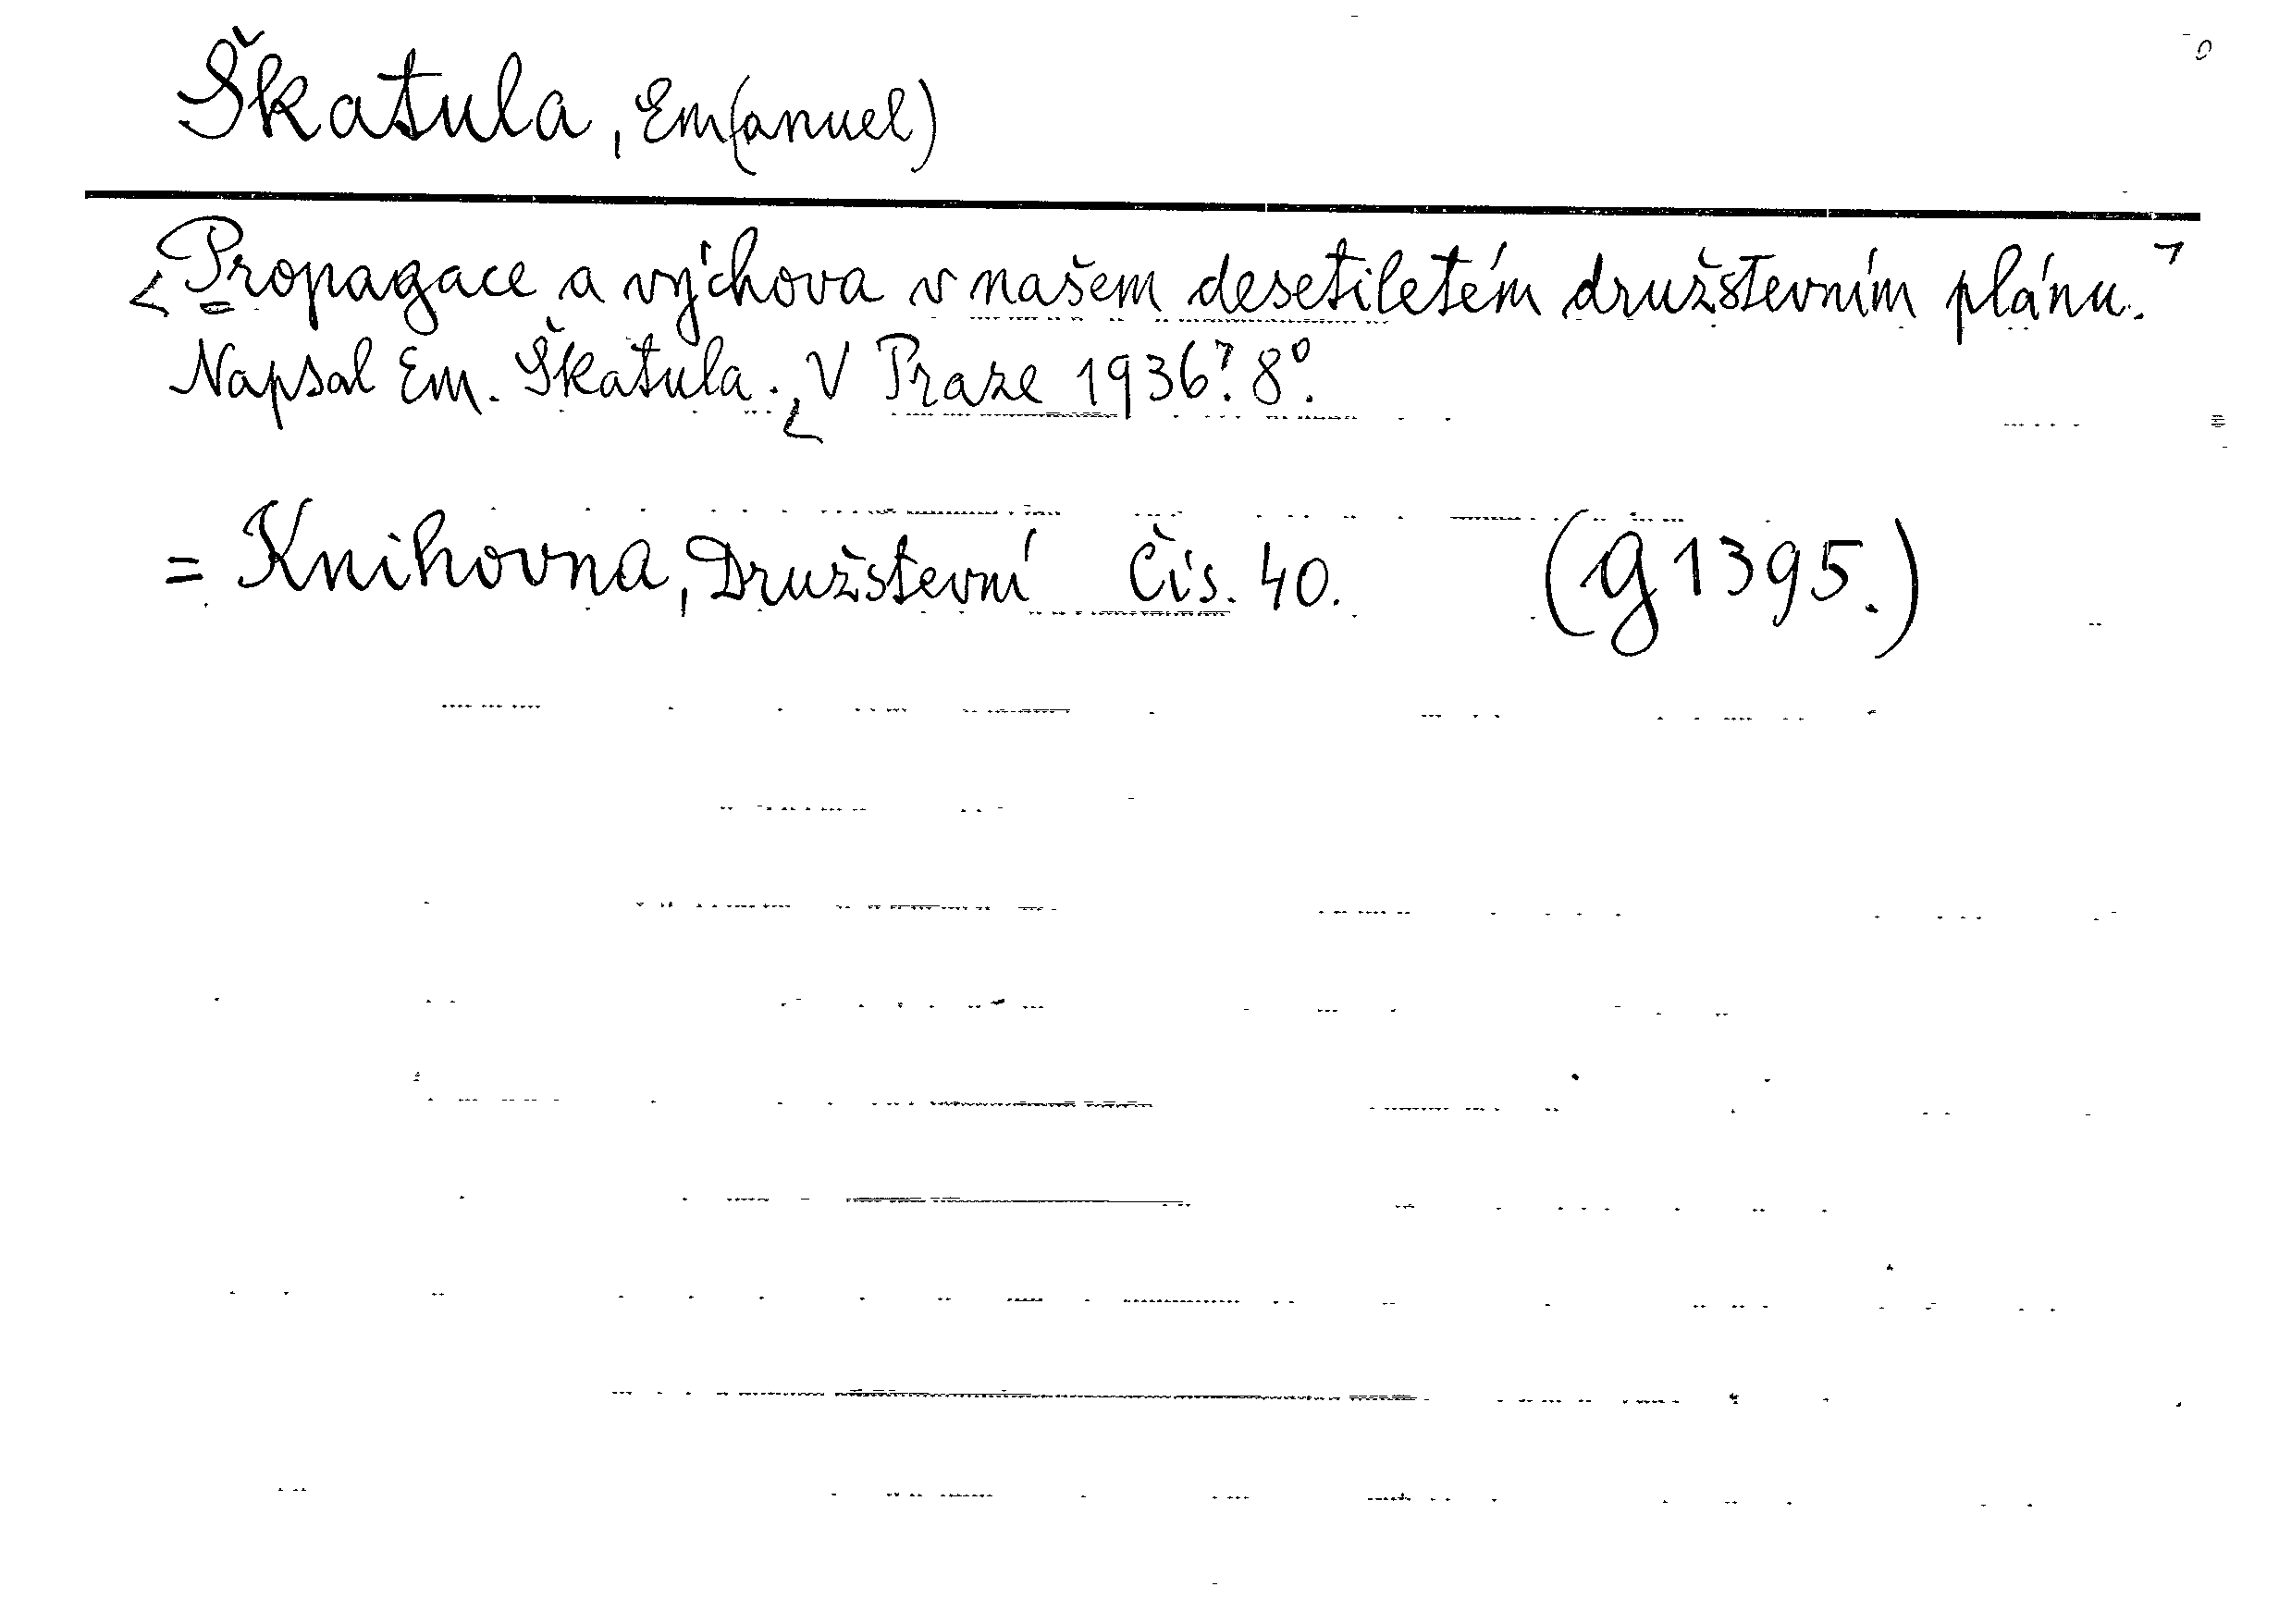 Škatula, Em(anuel)
Propagace a výchova v našem desetiletém družstevním plánu.
Napsal Em. Škatula. V Praze 1936? 8°.
= Knihovna, Družstevní Čís. 40. (g 1395.)